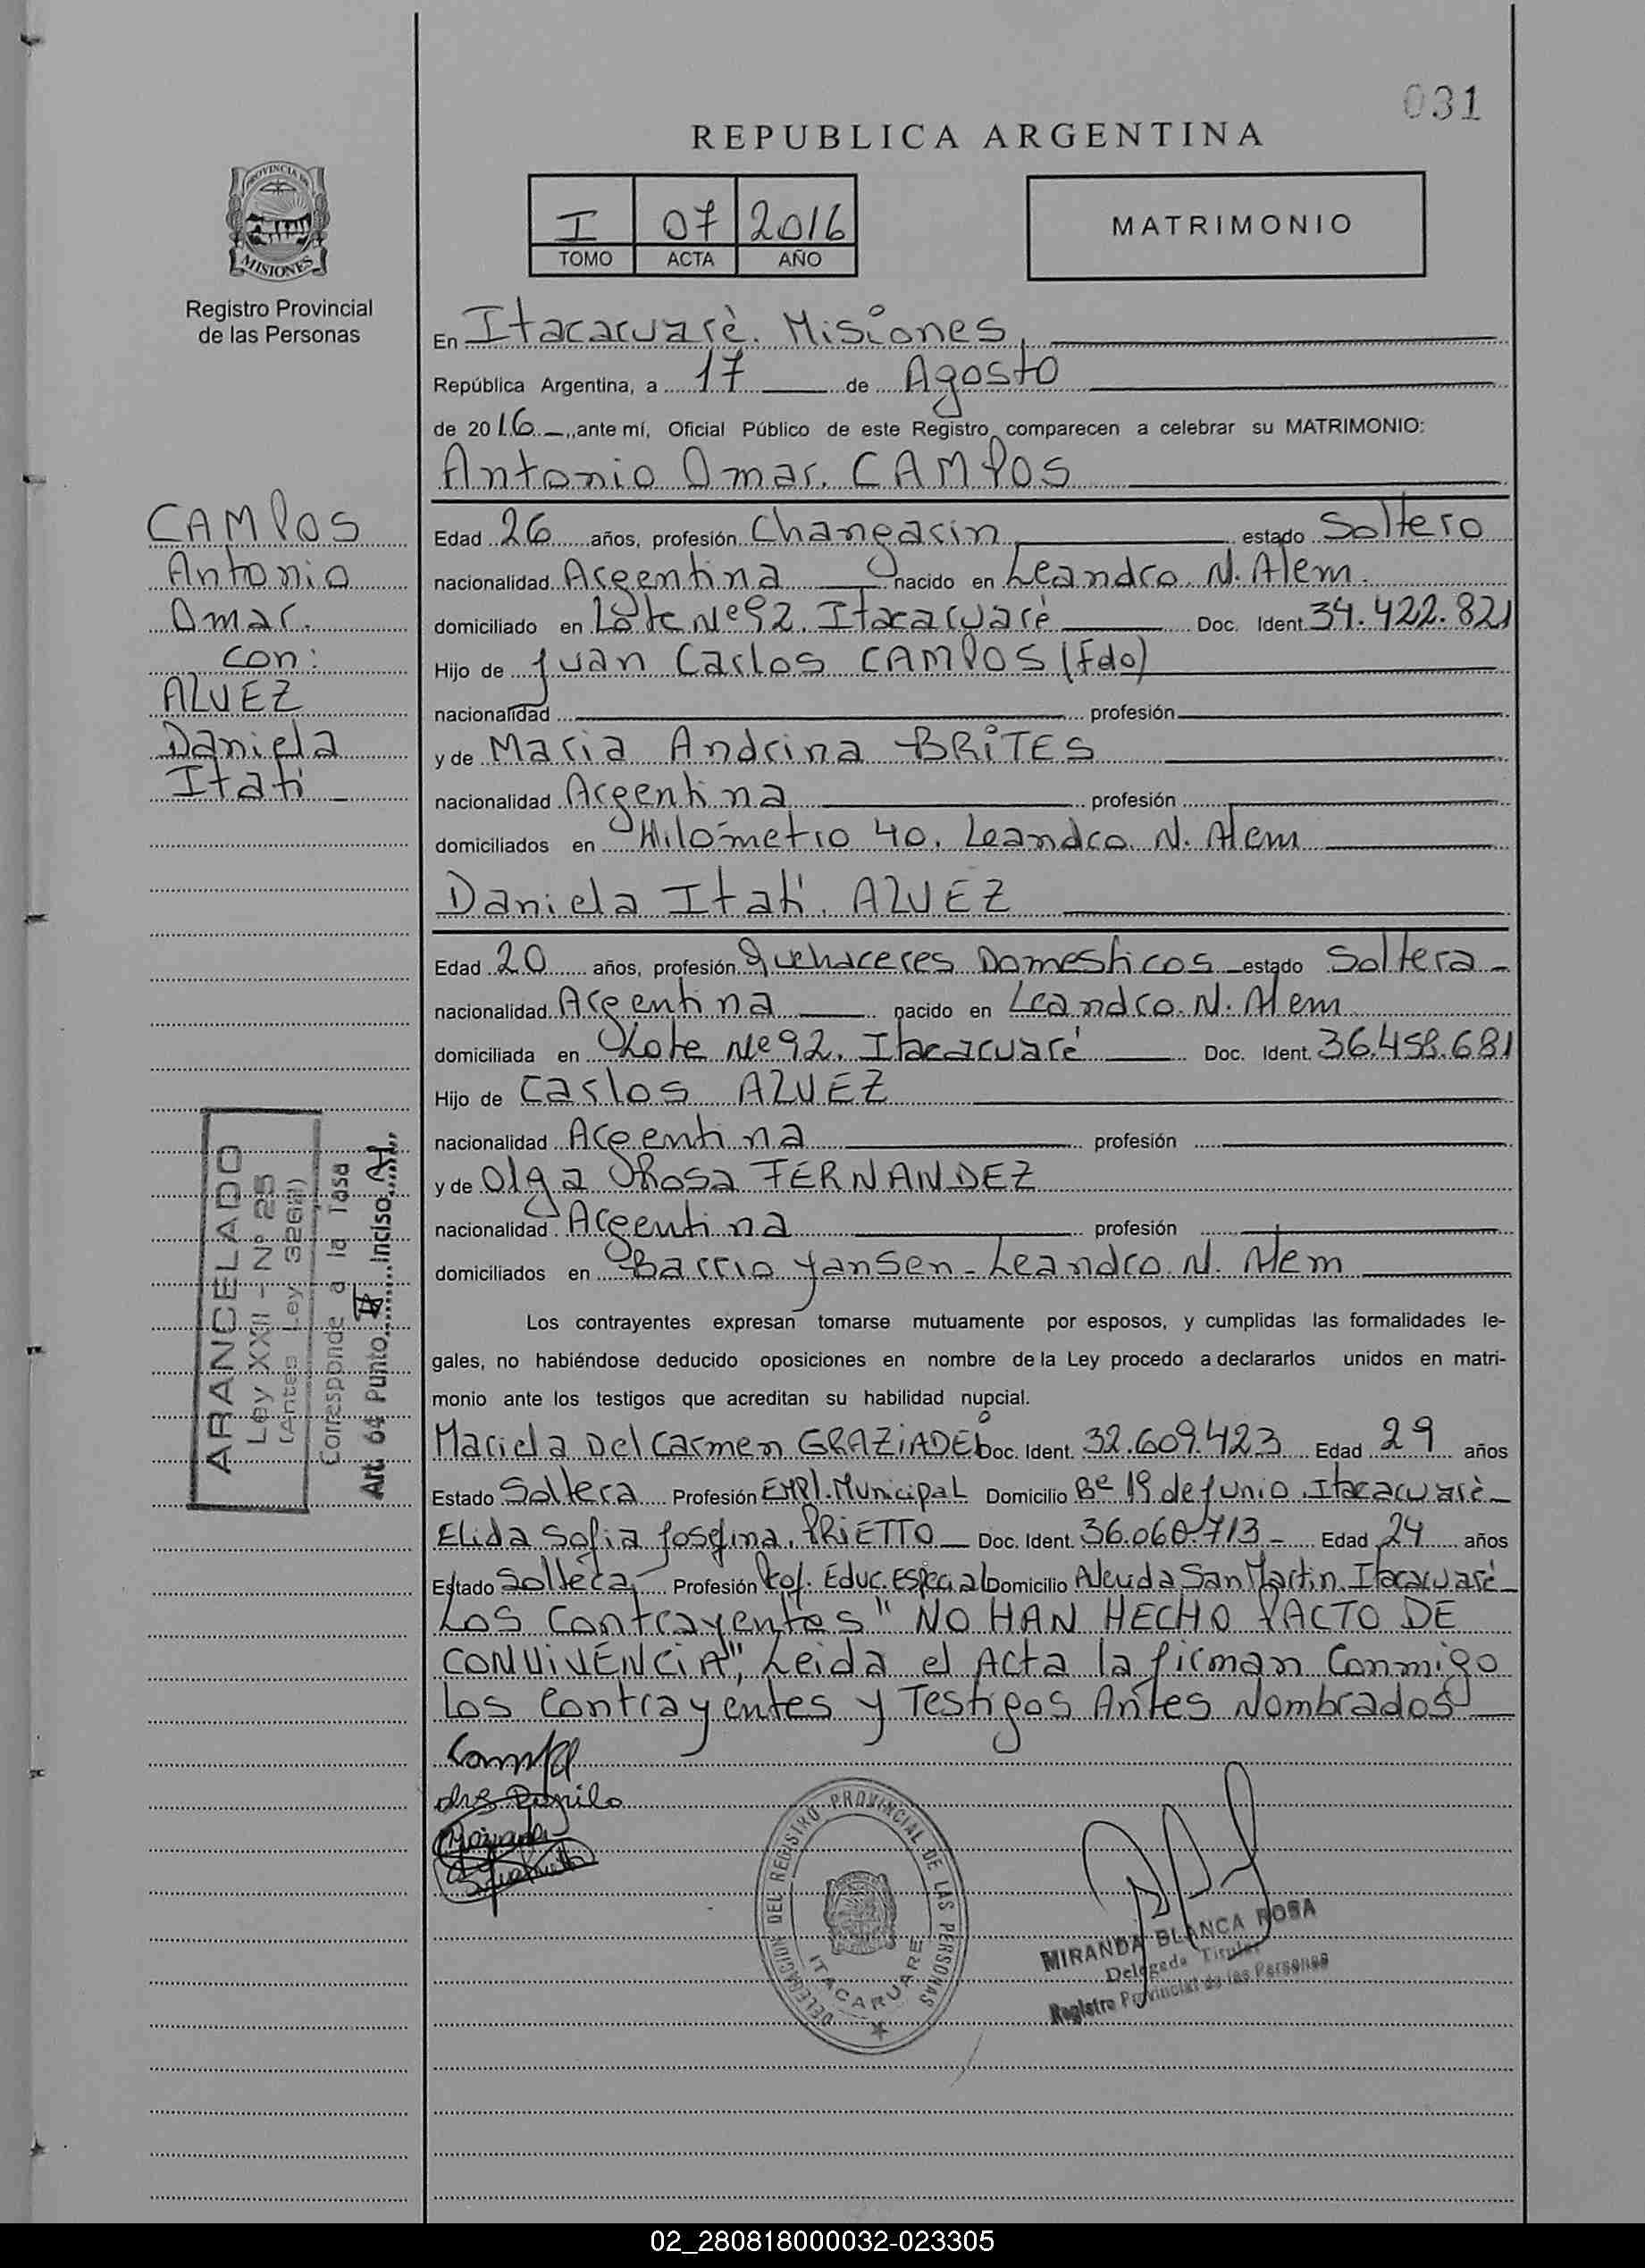 031
REPUBLICA ARGENTINA
I 07 2016
TOMO ACTA AÑO
MATRIMONIO
PROVINCIA DE
MISIONES
Registro Provincial
de las Personas
En Itacaruaré. Misiones
República Argentina, a 17 de Agosto
de 2016 ante mí, Oficial Público de este Registro comparecen a celebrar su MATRIMONIO:
Antonio Omar. CAMPOS
CAMPOS
Antonio
Omar.
con:
ALVEZ
Daniela
Itatí
Edad 26 años, profesión Changarin estado Soltero
nacionalidad Argentina nacido en Leandro. N. Alem.
domiciliado en Lote Nº 92. Itacaruaré Doc. Ident. 34.422.821
Hijo de Juan Carlos CAMPOS (Fdo)
nacionalidad profesión
y de Maria Andrina BRITES
nacionalidad Argentina profesión
domiciliados en Kilómetro 40. Leandro. N. Alem
Daniela Itatí. ALVEZ
Edad 20 años, profesión Quehaceres Domesticos estado Soltera
nacionalidad Argentina nacido en Leandro. N. Alem
domiciliada en Lote Nº 92. Itacaruaré Doc. Ident. 36.458.681
Hijo de Carlos ALVEZ
nacionalidad Argentina profesión
y de Olga Rosa FERNANDEZ
nacionalidad Argentina profesión
domiciliados en Barrio Yansen - Leandro. N. Alem
ARANCELADO
Ley XXII - Nº 25
(Antes Ley 3262)
Corresponde a la Tasa
Art. 64 Punto II Inciso A1
Los contrayentes expresan tomarse mutuamente por esposos, y cumplidas las formalidades le-
gales, no habiéndose deducido oposiciones en nombre de la Ley procedo a declararlos unidos en matri-
monio ante los testigos que acreditan su habilidad nupcial.
Mariela Del Carmen GRAZIADEI Doc. Ident. 32.609.423 Edad 29 años
Estado Soltera Profesión Empl. Municipal Domicilio Bº 19 de Junio. Itacaruaré
Elida Sofia Josefina. PRIETTO Doc. Ident. 36.060.713 Edad 24 años
Estado Soltera Profesión Prof. Educ. Especial Domicilio Avenida San Martin. Itacaruaré
Los Contrayentes "NO HAN HECHO PACTO DE
CONVIVENCIA", Leida el Acta la firman Conmigo
los Contrayentes y Testigos Antes Nombrados
DELEGACION DEL REGISTRO PROVINCIAL DE LAS PERSONAS
ITACARUARE
MIRANDA BLANCA ROSA
Delegada Titular
Registro Provincial de las Personas
02_280818000032-023305